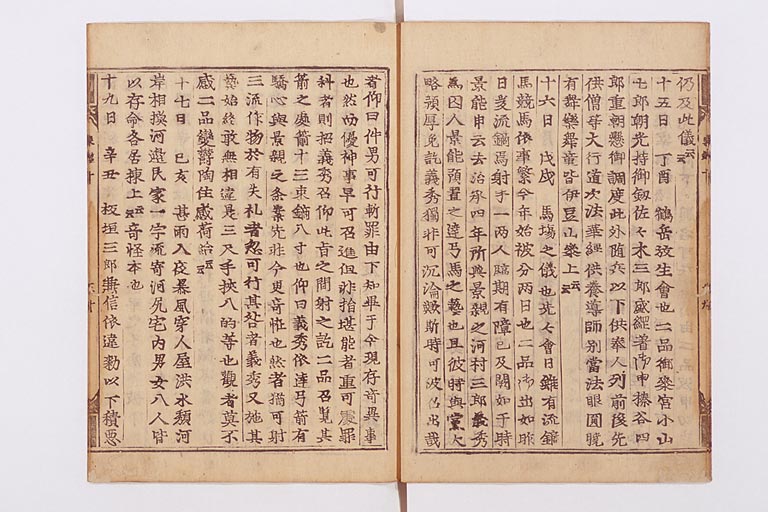 仍及此儀云云
十五日 丁酉 鶴岳放生會也二品御參宮小山
七郎朝光持御釼佐々木三郎盛綱著御甲榛谷四
郎重朝懸御調度此外随兵以下供奉人列前後先
供僧等大行道次法華經供養導師別當法眼圓曉
有舞樂舞童皆伊豆山參上云云
十六日 戊戌 馬場之儀也先々會日雖有流鏑
馬競馬依事繁今年始被分兩日也二品御出如昨
日爰流鏑馬射手一兩人臨期有障已及闕如于時
景能申云去治承四年所與景親之河村三郎義秀
為囚人景能預置之達弓馬之藝也且彼時與黨大
略預厚免訖義秀獨非可沉淪歟斯時可被召出哉
者仰曰件男可行斬罪由下知畢于今現存奇異事
也然而優神事早可召進但非指堪能者重可處罪
科者則招義秀召仰此旨之間射之訖二品召覽其
箭之處箭十三束鏑八寸也仰曰義秀依達弓箭有
驕心與景親之条案先非今更奇恠也然者猶可射
三流作物於有失礼者忽可行其咎者義秀又施其
藝始終敢無相違是三尺手挾八的等也觀者莫不
感二品變欝陶住感荷給云云
十七日 己亥 甚雨入夜暴風穿人屋洪水頽河
岸相摸河邊民家一字流寄河尻宅内男女八人皆
以存命各居棟上云云奇恠本也
十九日 辛丑 板垣三郎兼信依違勅以下積悪